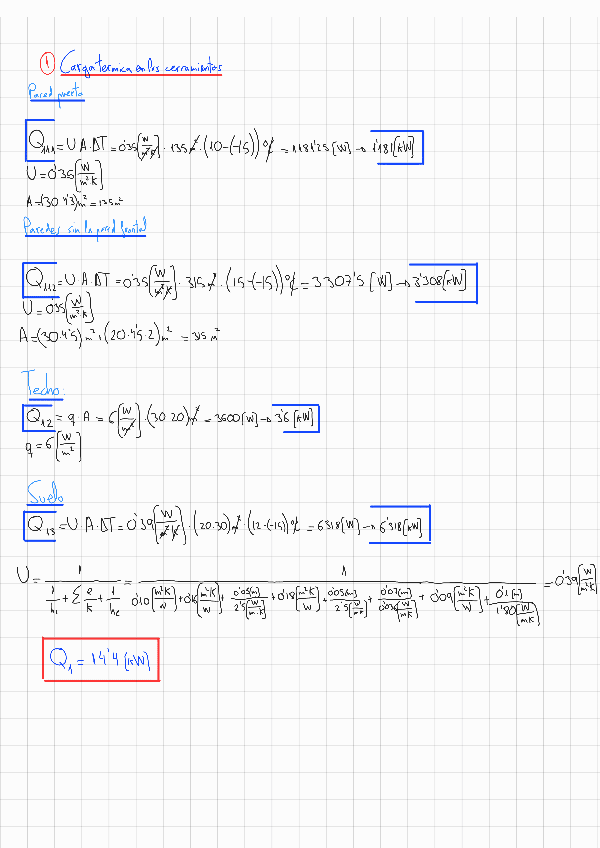 ① Carga termica en los cerramientos
Pared puerta
Q₁₁₁ = U·A·ΔT = 0'35[W/m²K] · 135m² · (10-(-15))ºC = 1181'25[W] → 1'181[kW]
U = 0'35[W/m²K]
A = (30·4'5)m² = 135m²
Paredes sin la pared frontal
Q₁₁₂ = U·A·ΔT = 0'35[W/m²K] · 315m² · (15-(-15))ºC = 3307'5[W] → 3'308[kW]
U = 0'35[W/m²K]
A = (30·4'5)m² + (20·4'5·2)m² = 315m²
Techo:
Q₁₂ = q·A = 6[W/m²] · (30·20)m² = 3600[W] → 3'6[kW]
q = 6[W/m²]
Suelo
Q₁₃ = U·A·ΔT = 0'39[W/m²K] · (20·30)m² · (12-(-15))ºC = 6318[W] → 6'318[kW]
U = 1/(1/h₁ + Σ e/k + 1/he) = 1/(0'10[m²K/W] + 0'16[m²K/W] + 0'05[m]/2'5[W/m·K] + 0'18[m²K/W] + 0'05[m]/2'5[W/mK] + 0'07[m]/0'036[W/mK] + 0'09[m²K/W] + 0'1[m]/1'80[W/mK]) = 0'39[W/m²K]
Q₁ = 14'4[kW]